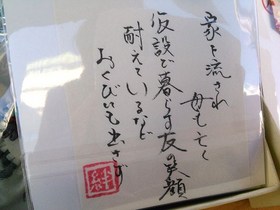 家も流され
母も亡く
仮設で暮らす友の笑顔
耐えているなど
おくびにも出さず
絆